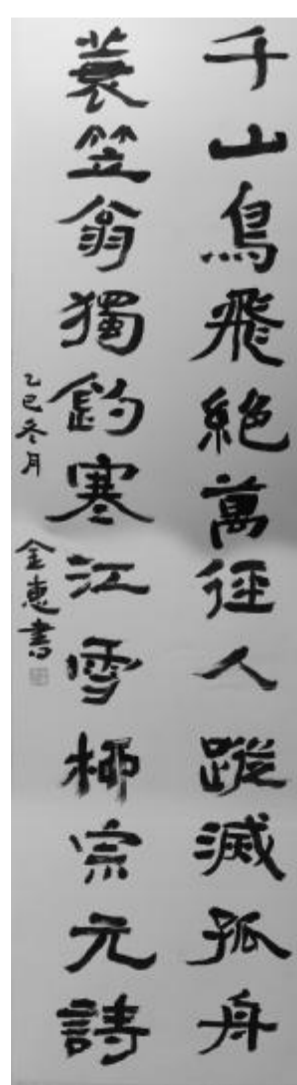 千山鳥飛絕萬徑人蹤滅孤舟
蓑笠翁獨釣寒江雪柳宗元詩
乙巳冬月 金惠書